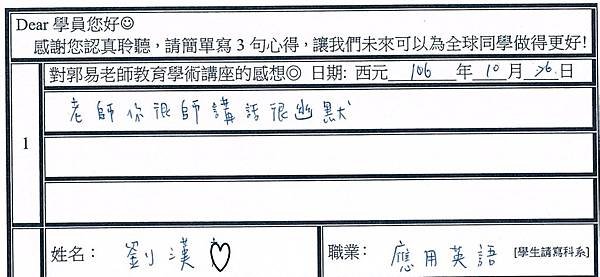 Dear 學員您好☺
感謝您認真聆聽，請簡單寫3句心得，讓我們未來可以為全球同學做得更好!
對郭易老師教育學術講座的感想◎ 日期: 西元 106 年 10 月 26 日
1
老師你很師講話很幽默
姓名： 劉漢♡ 職業： 應用英語 [學生請寫科系]